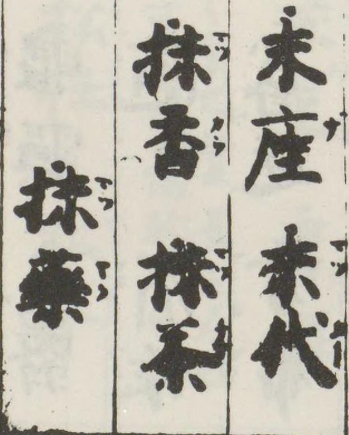 末座 末代
抹香 抹茶
抹藥